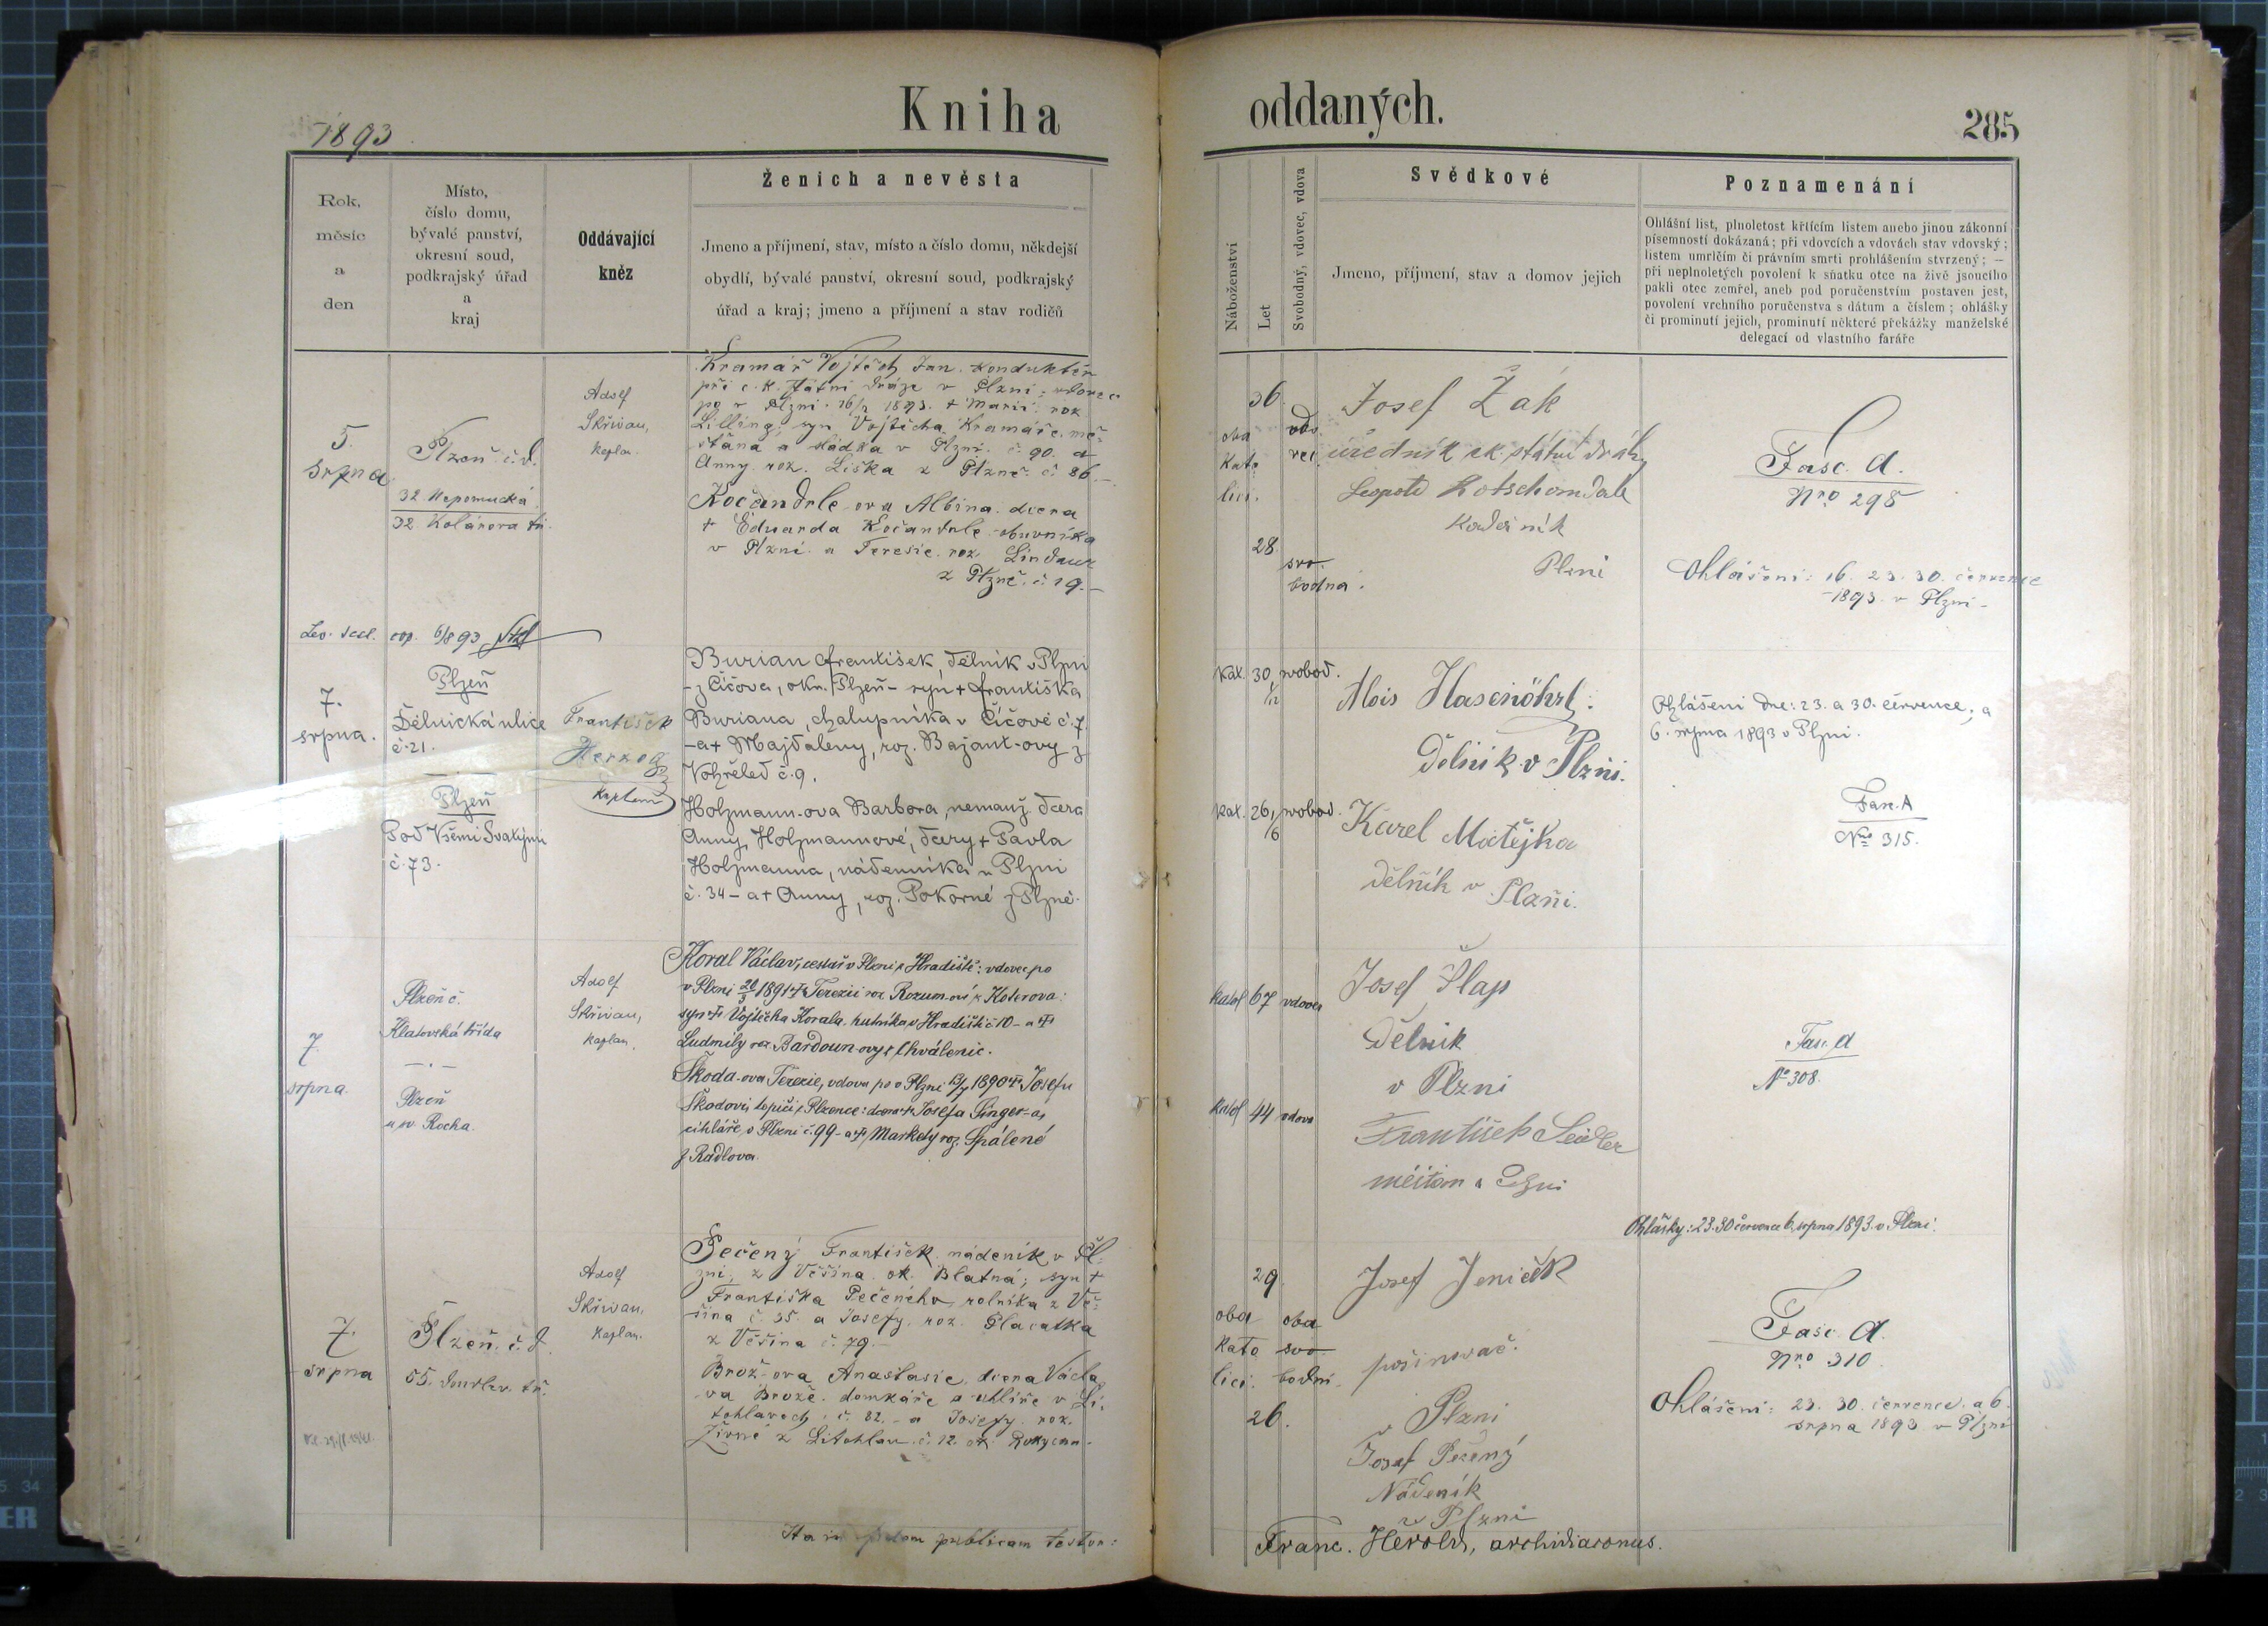 Kniha oddaných.
1893
285
Rok,
měsíc
a
den
Místo,
číslo domu,
bývalé panství,
okresní soud,
podkrajský úřad
a
kraj
Oddávající
kněz
Ženich a nevěsta
Jmeno a příjmení, stav, místo a číslo domu, někdejší
obydlí, bývalé panství, okresní soud, podkrajský
úřad a kraj; jmeno a příjmení a stav rodičů
Náboženství
Let
Svobodný, vdovec, vdova
Svědkové
Jmeno, příjmení, stav a domov jejich
Poznamenání
Ohlášní list, plnoletost křticím listem anebo jinou zákonní
písemností dokázaná; při vdovcích a vdovách stav vdovský;
listem umrlčím či právním smrti prohlášením stvrzený; —
při neplnoletých povolení k sňatku otce na živě jsoucího
pakli otec zemřel, aneb pod poručenstvím postaven jest,
povolení vrchního poručenstva s dátum a číslem; ohlášky
či prominutí jejich, prominutí některé překážky manželské
delegací od vlastního faráře
5.
srpna
Plzeň č. d.
32 Nepomucká
32 Kolárova tř.
Adolf
Skřivan,
kaplan
Kramář Vojtěch Jan. konduktér
při c. k. státní dráze v Plzni; vdovec
po v Plzni 16/2 1893. + Marii roz
Lilling; syn Vojtěcha Kramáře, mě-
šťana a sládka v Plzni č. 90. a
Anny roz. Liška z Plzně č. 86.
Kočandrle-ova Albina. dcera
+ Eduarda Kočandrle obuvníka
v Plzni a Teresie roz Lindaur
z Plzně. č. 19.
36.
oba
kato
lici.
vdo
vec
28.
svo
bodna.
Josef Žák
úředník ck. státní dráhy
Leopold Kotschandrle
Kadeřník
Plzni
Fasc. A.
Nro 295
Ohlášení: 16. 23. 30. července
1893. v Plzni
Lev. secl. exp. 6/8 93
7.
srpna.
Plzeň
Dělnická ulice
č. 21.
Plzeň
Pod Všemi Svatými
č. 73.
František
Herzog
kaplan
Burian František, dělník v Plzni
- z Číčova, okr. Plzeň - syn + Františka
Buriana, chalupníka v Číčově č. 7
- a + Majdaleny, roz. Bajant-ovy z
Vohřeled č. 9.
Holzmann-ova Barbora, nemanž. dcera
Anny Holzmannové, dcery + Pavla
Holzmanna, nádenníka v Plzni
č. 34 - a + Anny, roz. Pokorné z Plzně.
kat. 30 svobod.
kat. 26 svobod.
Alois Hasenöhrl
Dělník v Plzni.
Karel Matějka
dělník v Plzni.
Ohlášení dne: 23. a 30. července, a
6. srpna 1893 v Plzni.
Fasc. A
Nro 315.
7.
srpna.
Plzeň č.
Klatovská třída
Plzeň
u sv. Rocha.
Adolf
Skřivan,
kaplan.
Koral Václav, cestář v Plzni z Hradiště: vdovec po
v Plzni 1891 + Terezii roz. Rozum-ové z Koterova:
syn + Vojtěcha Korala, hutníka v Hradišti č. 10 - a +
Ludmily roz. Bardoun-ovy z Chválenic.
Škoda-ova Terezie, vdova po v Plzni 1890 + Josefu
Škodovi, topiči z Plzence: dcera + Josefa Singer-a,
cihláře v Plzni č. 99 - a + Markéty roz. Spálené
z Radlova.
katol 67 vdovec
katol 44 vdova
Josef Šlap
Dělník
v Plzni
František Seidler
měšťan v Plzni
Fasc. A
No 308.
Ohlášky: 23. 30 července 6. srpna 1893. v Plzni.
7.
srpna
Plzeň. č. d.
55. tř.
Adolf
Skřivan,
kaplan.
Pečený František nádeník v Pl-
zni, z Věšína ok. Blatná; syn +
Františka Pečeného, rolníka z Vě-
šína č. 35. a Josefy, roz. Placatka
z Věšína č. 79.
Brož-ova Anastasie, dcera Václa-
va Brože. domkáře a uhlíře v Li-
tohlavech č. 82. - a Josefy roz.
Živné z Litohlav č. 12. ok. Rokycan-
29.
oba
kato
lici.
oba
svo
bodni.
26.
Josef Jeníček
posinovač.
v Plzni
Josef Pečený
Nádeník
v Plzni
Fasc. A.
Nro 310.
Ohlášení: 23. 30. července. a 6.
srpna 1893 v Plzni
Ita in fidem publicam testor:
Franc. Herold, archidiaconus.